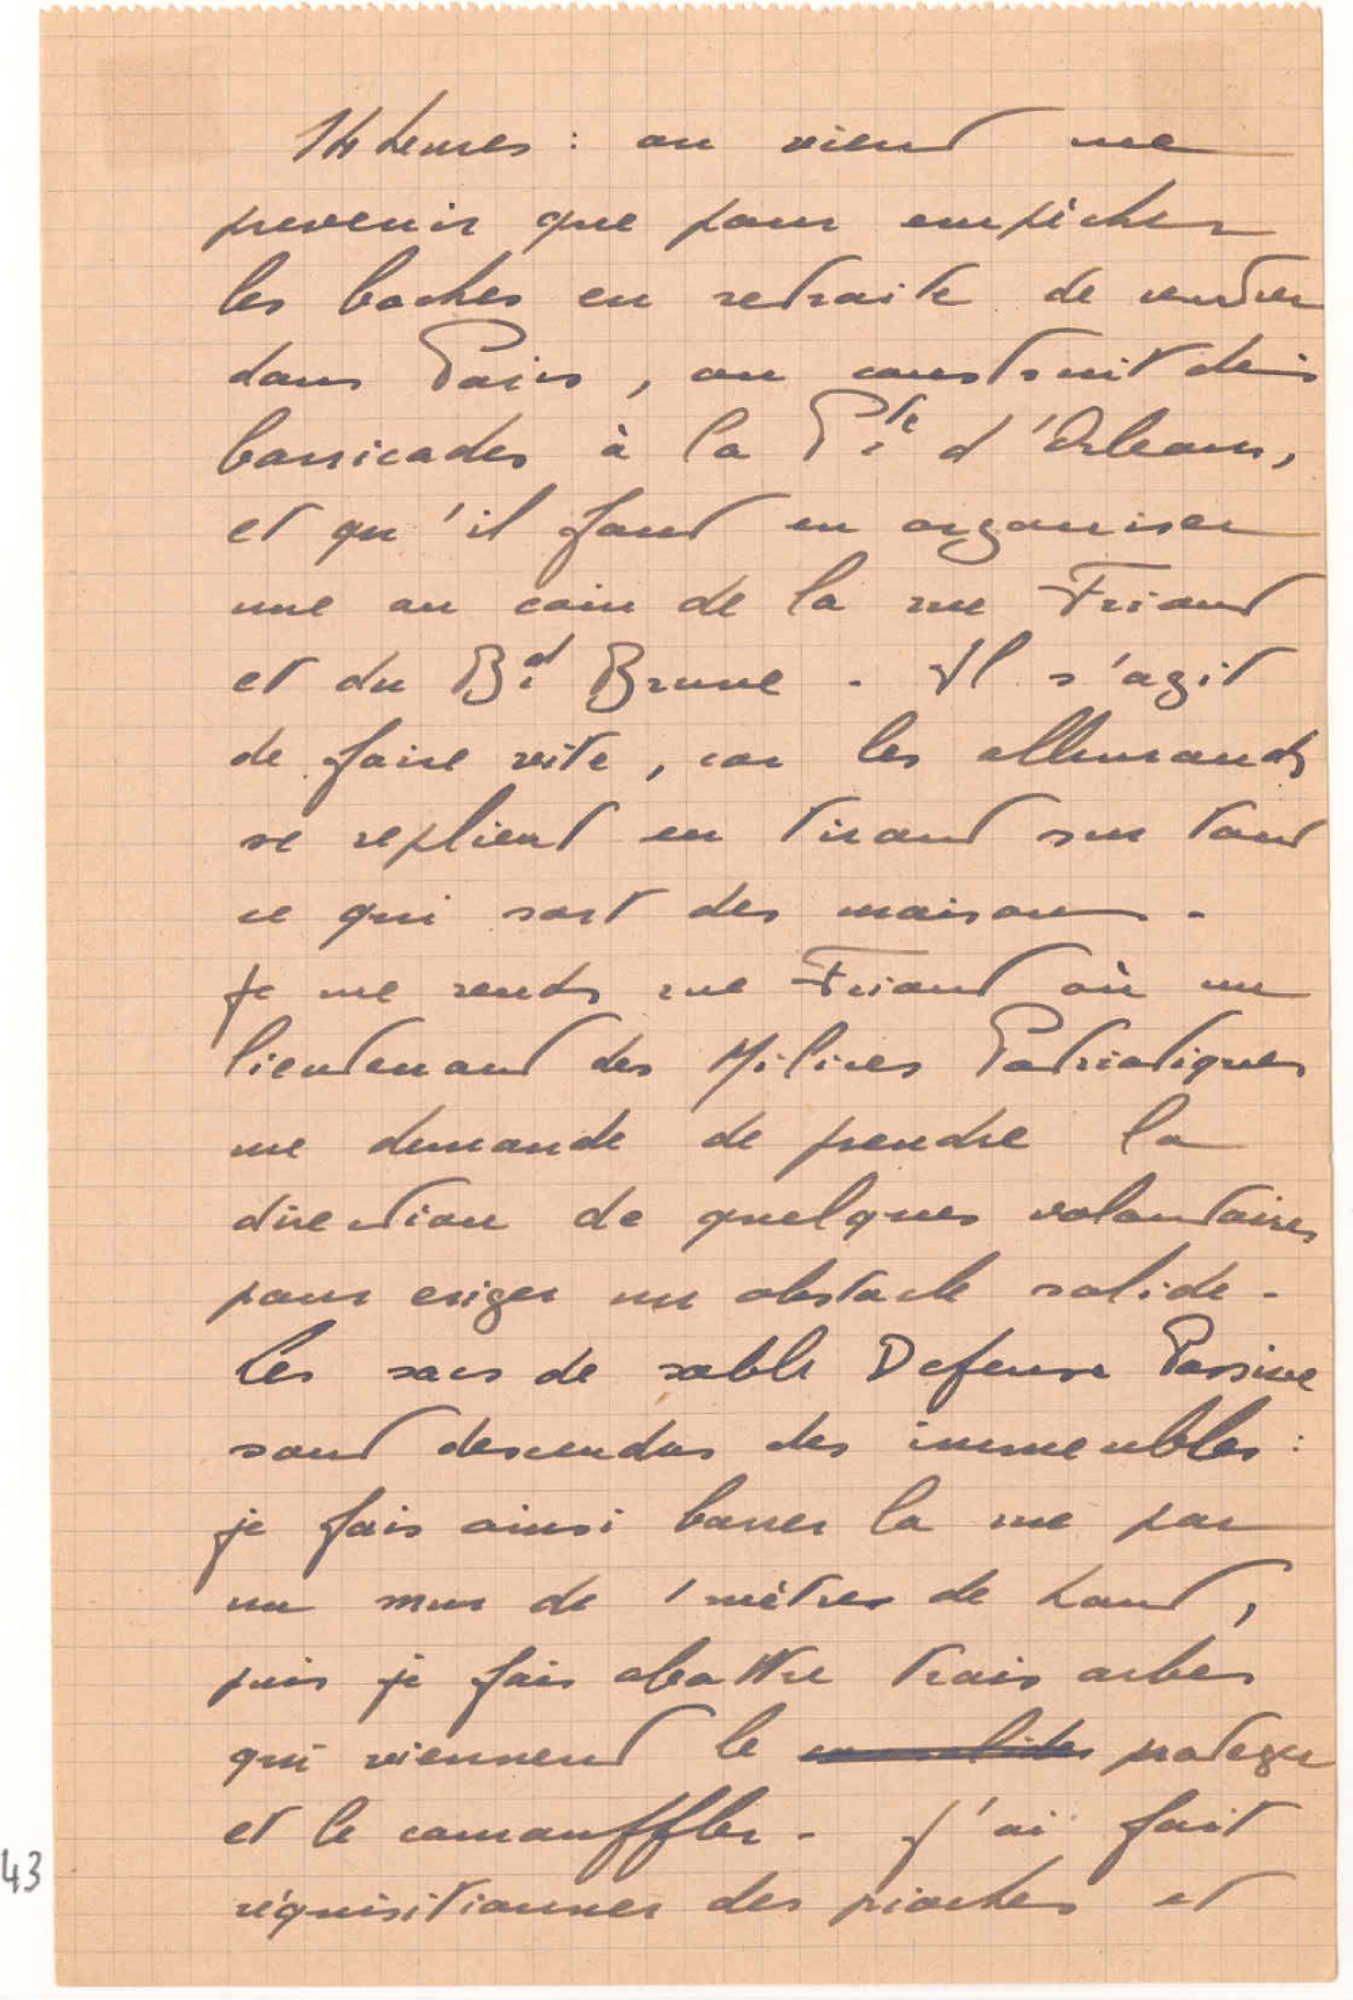 14 heures : on vient me
prevenir que pour empêcher
les boches en retraite de rentrer
dans Paris, on construit des
barricades à la Pte d'Orleans,
et qu'il faut en organiser
une au coin de la rue Friant
et du Bd Brune. Il s'agit
de faire vite, car les allemands
se replient en tirant sur tout
ce qui sort des maisons.
Je me rends rue Friant où un
lieutenant des Milices Patriotiques
me demande de prendre la
direction de quelques volontaires
pour eriger un obstacle solide.
Les sacs de sable Defense Passive
sont descendus des immeubles :
je fais ainsi barrer la rue par
un mur de 1 mètre de haut,
puis je fais abattre trois arbres
qui viennent le proteger
et le camouffler. J'ai fait
réquisitionner des pioches et
43